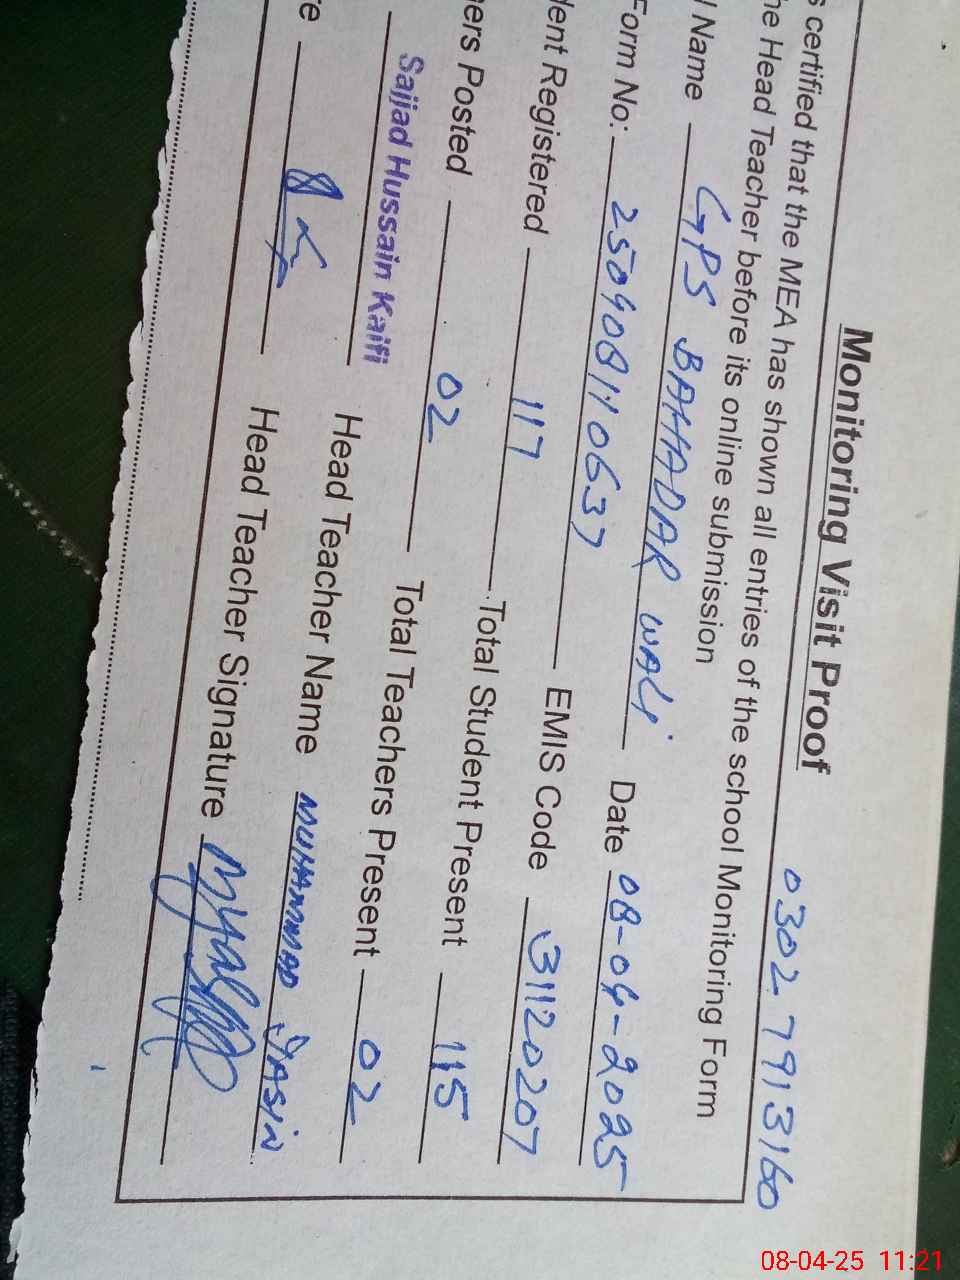 Monitoring Visit Proof
0302-7913160
s certified that the MEA has shown all entries of the school Monitoring Form
he Head Teacher before its online submission
l Name GPS BAHADAR WALI Date 08-04-2025
Form No: 250408110637 EMIS Code 31120207
dent Registered 117 Total Student Present 115
ers Posted 02 Total Teachers Present 02
Sajjad Hussain Kaifi Head Teacher Name MUHAMMAD YASIN
re Head Teacher Signature
08-04-25 11:21